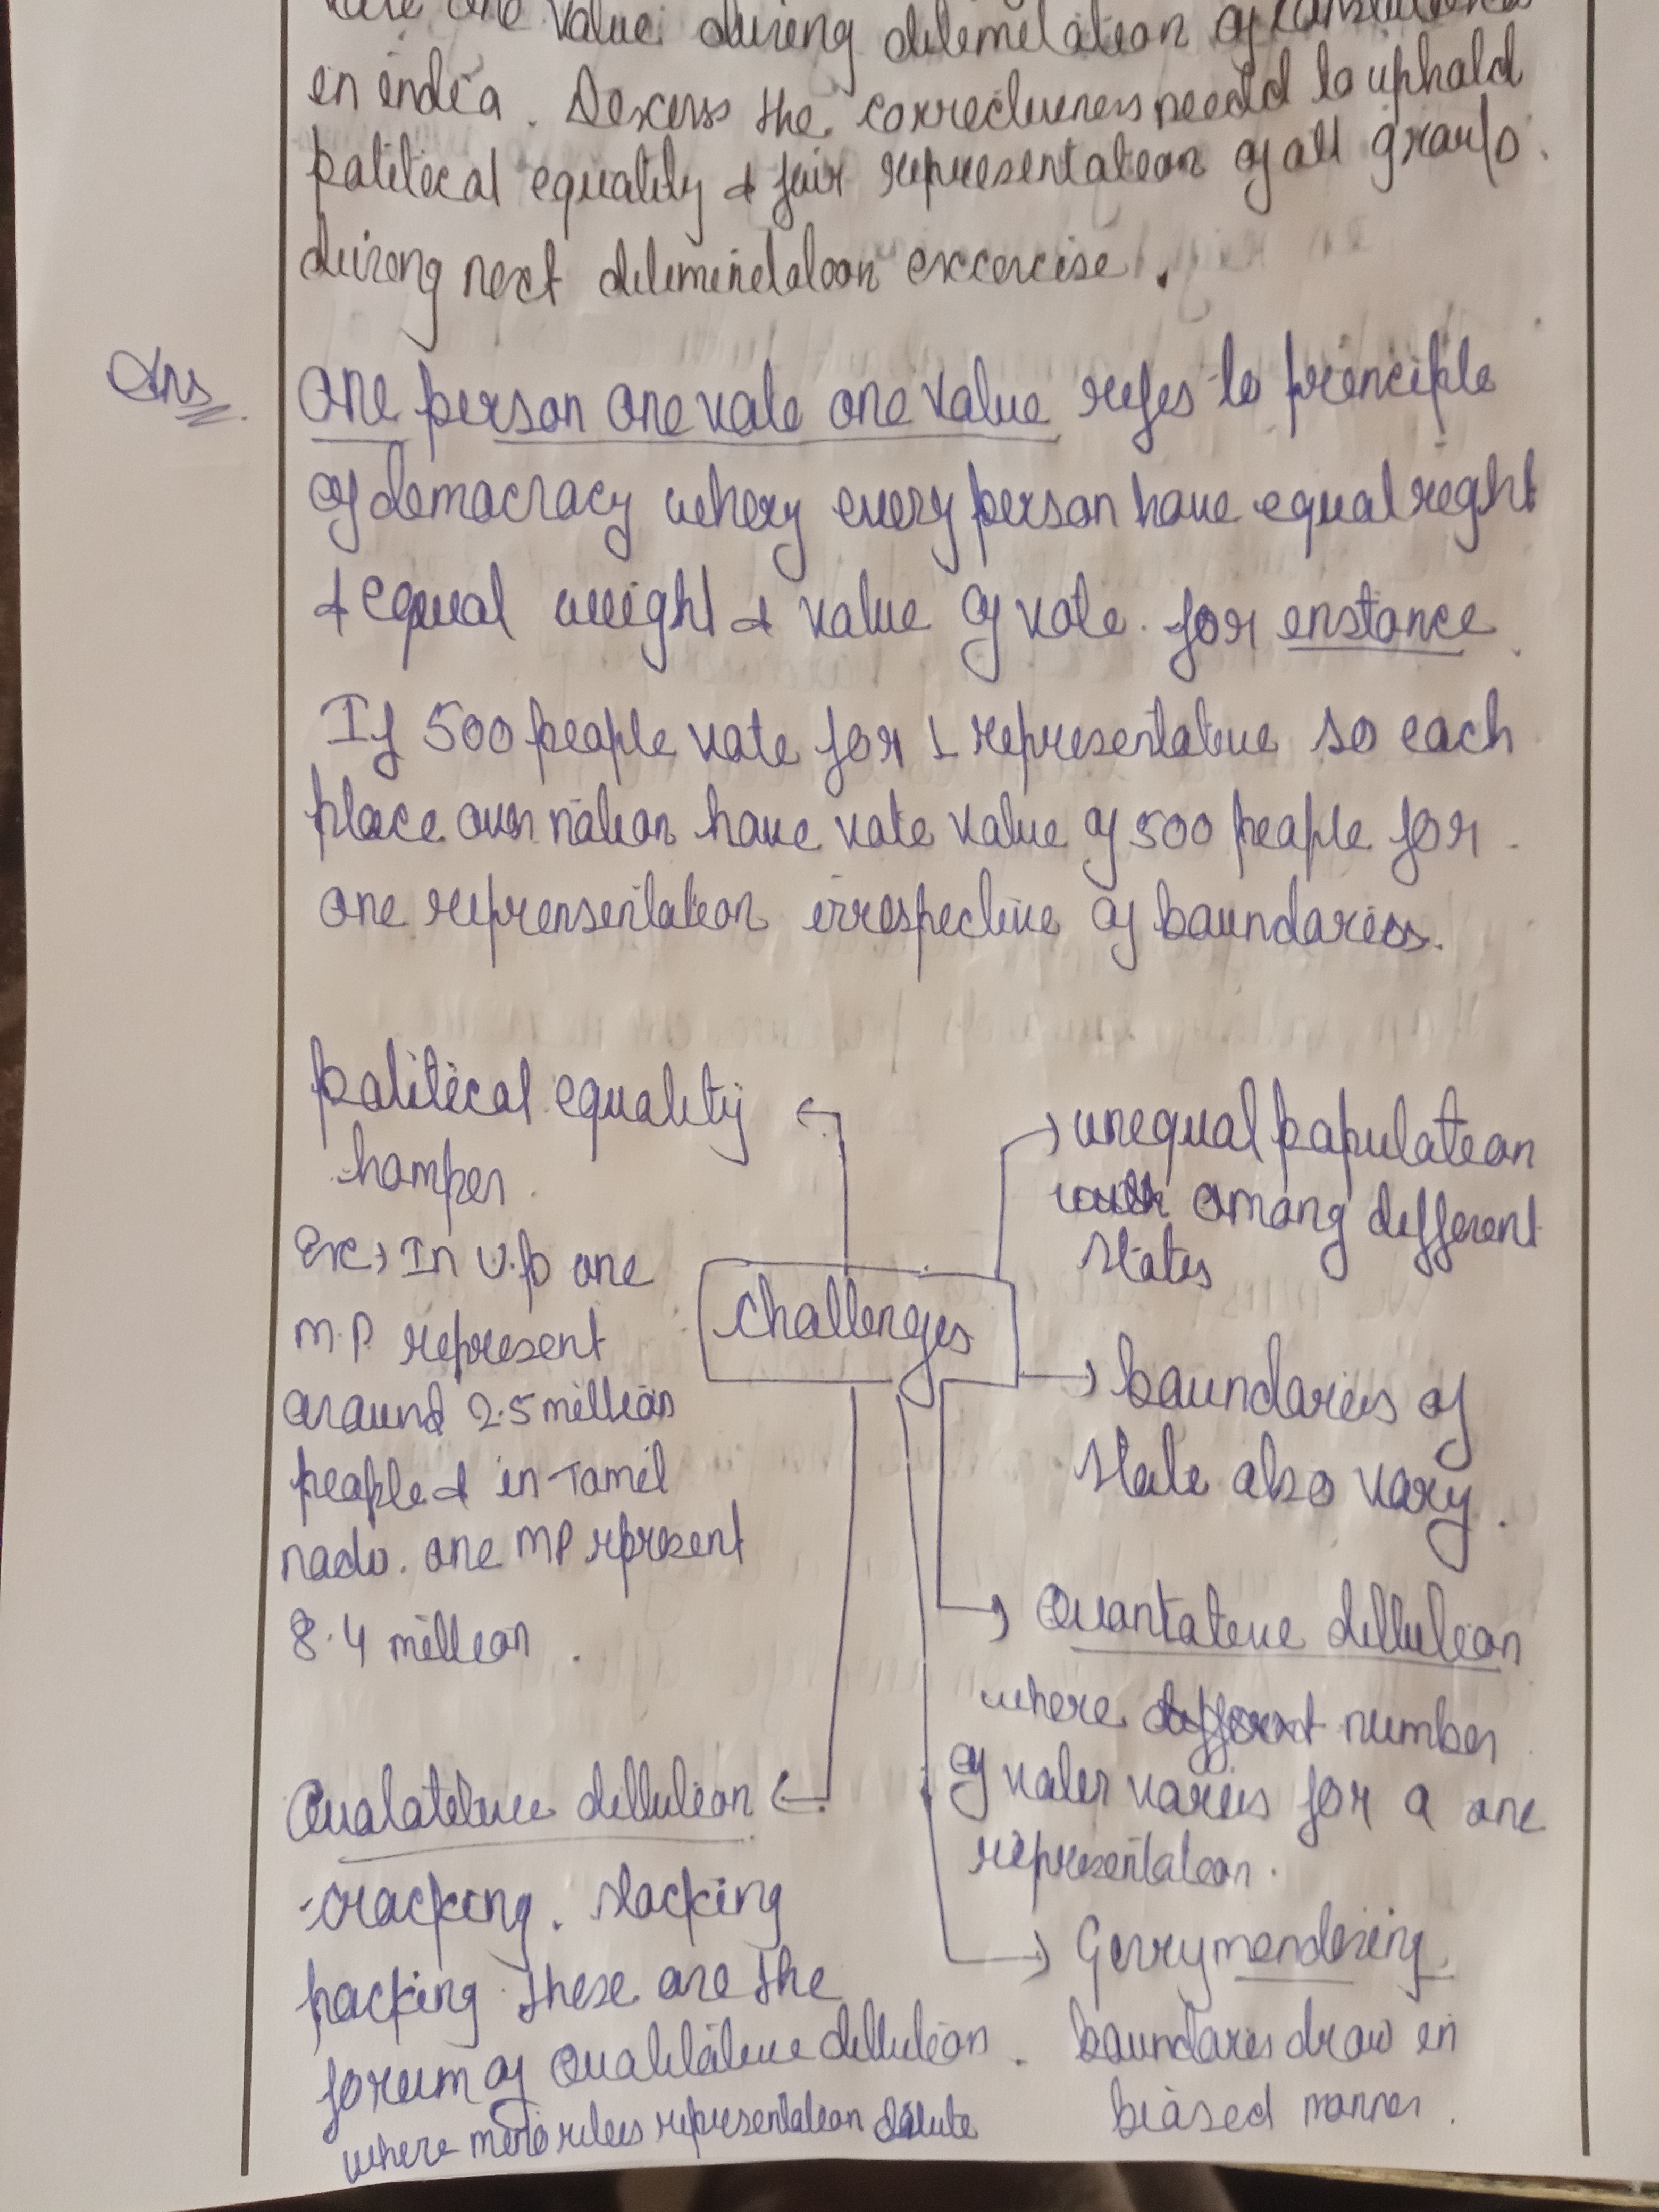 one value during delimelation of
in india. Discuss the correctiveness needed to uphald
political equality & fair representation of all groups.
during next delimindation excercise.
Ans
One person one vote one value refes to principle
of democracy whery every person have equal right
& equal weight & value of vote. for instance
If 500 people vote for 1 representative so each
place over nation have vote value of 500 people for
one reprensentation irrespective of boundaries.
political equality
hamper.
Ex → In U.P one
M.P represent
around 2.5 million
people & in Tamil
nadu. one MP rpresent
8.4 million.
Challenges
unequal population
among different
states
boundaries of
state also vary.
Quantative dillution
where different number
of voter varies for a one
representation.
Gerrymendering
boundares draw in
biased manner.
Qualatitive dillution
cracking. stacking
packing these are the
forum of Qualitative dillution.
where minorities representation dilute